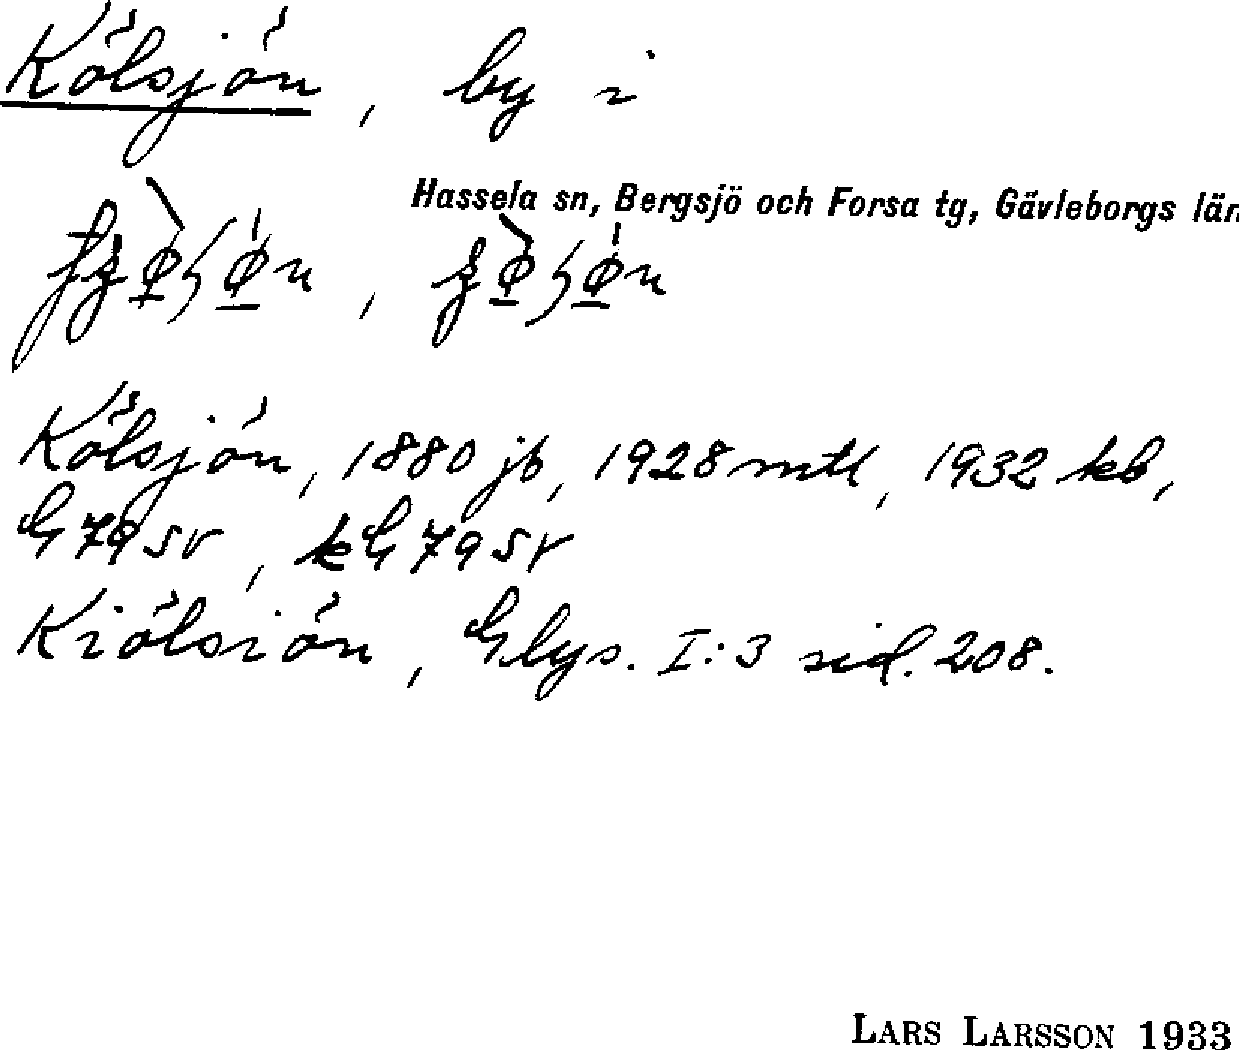 Kölsjön, by i
Hassela sn, Bergsjö och Forsa tg, Gävleborgs län
Kölsjön, 1880 jb, 1928 mtl, 1932 kb,
G 79 sv, kG 79 sv
Kiölsiön, Glys. I:3 sid. 208.
LARS LARSSON 1933